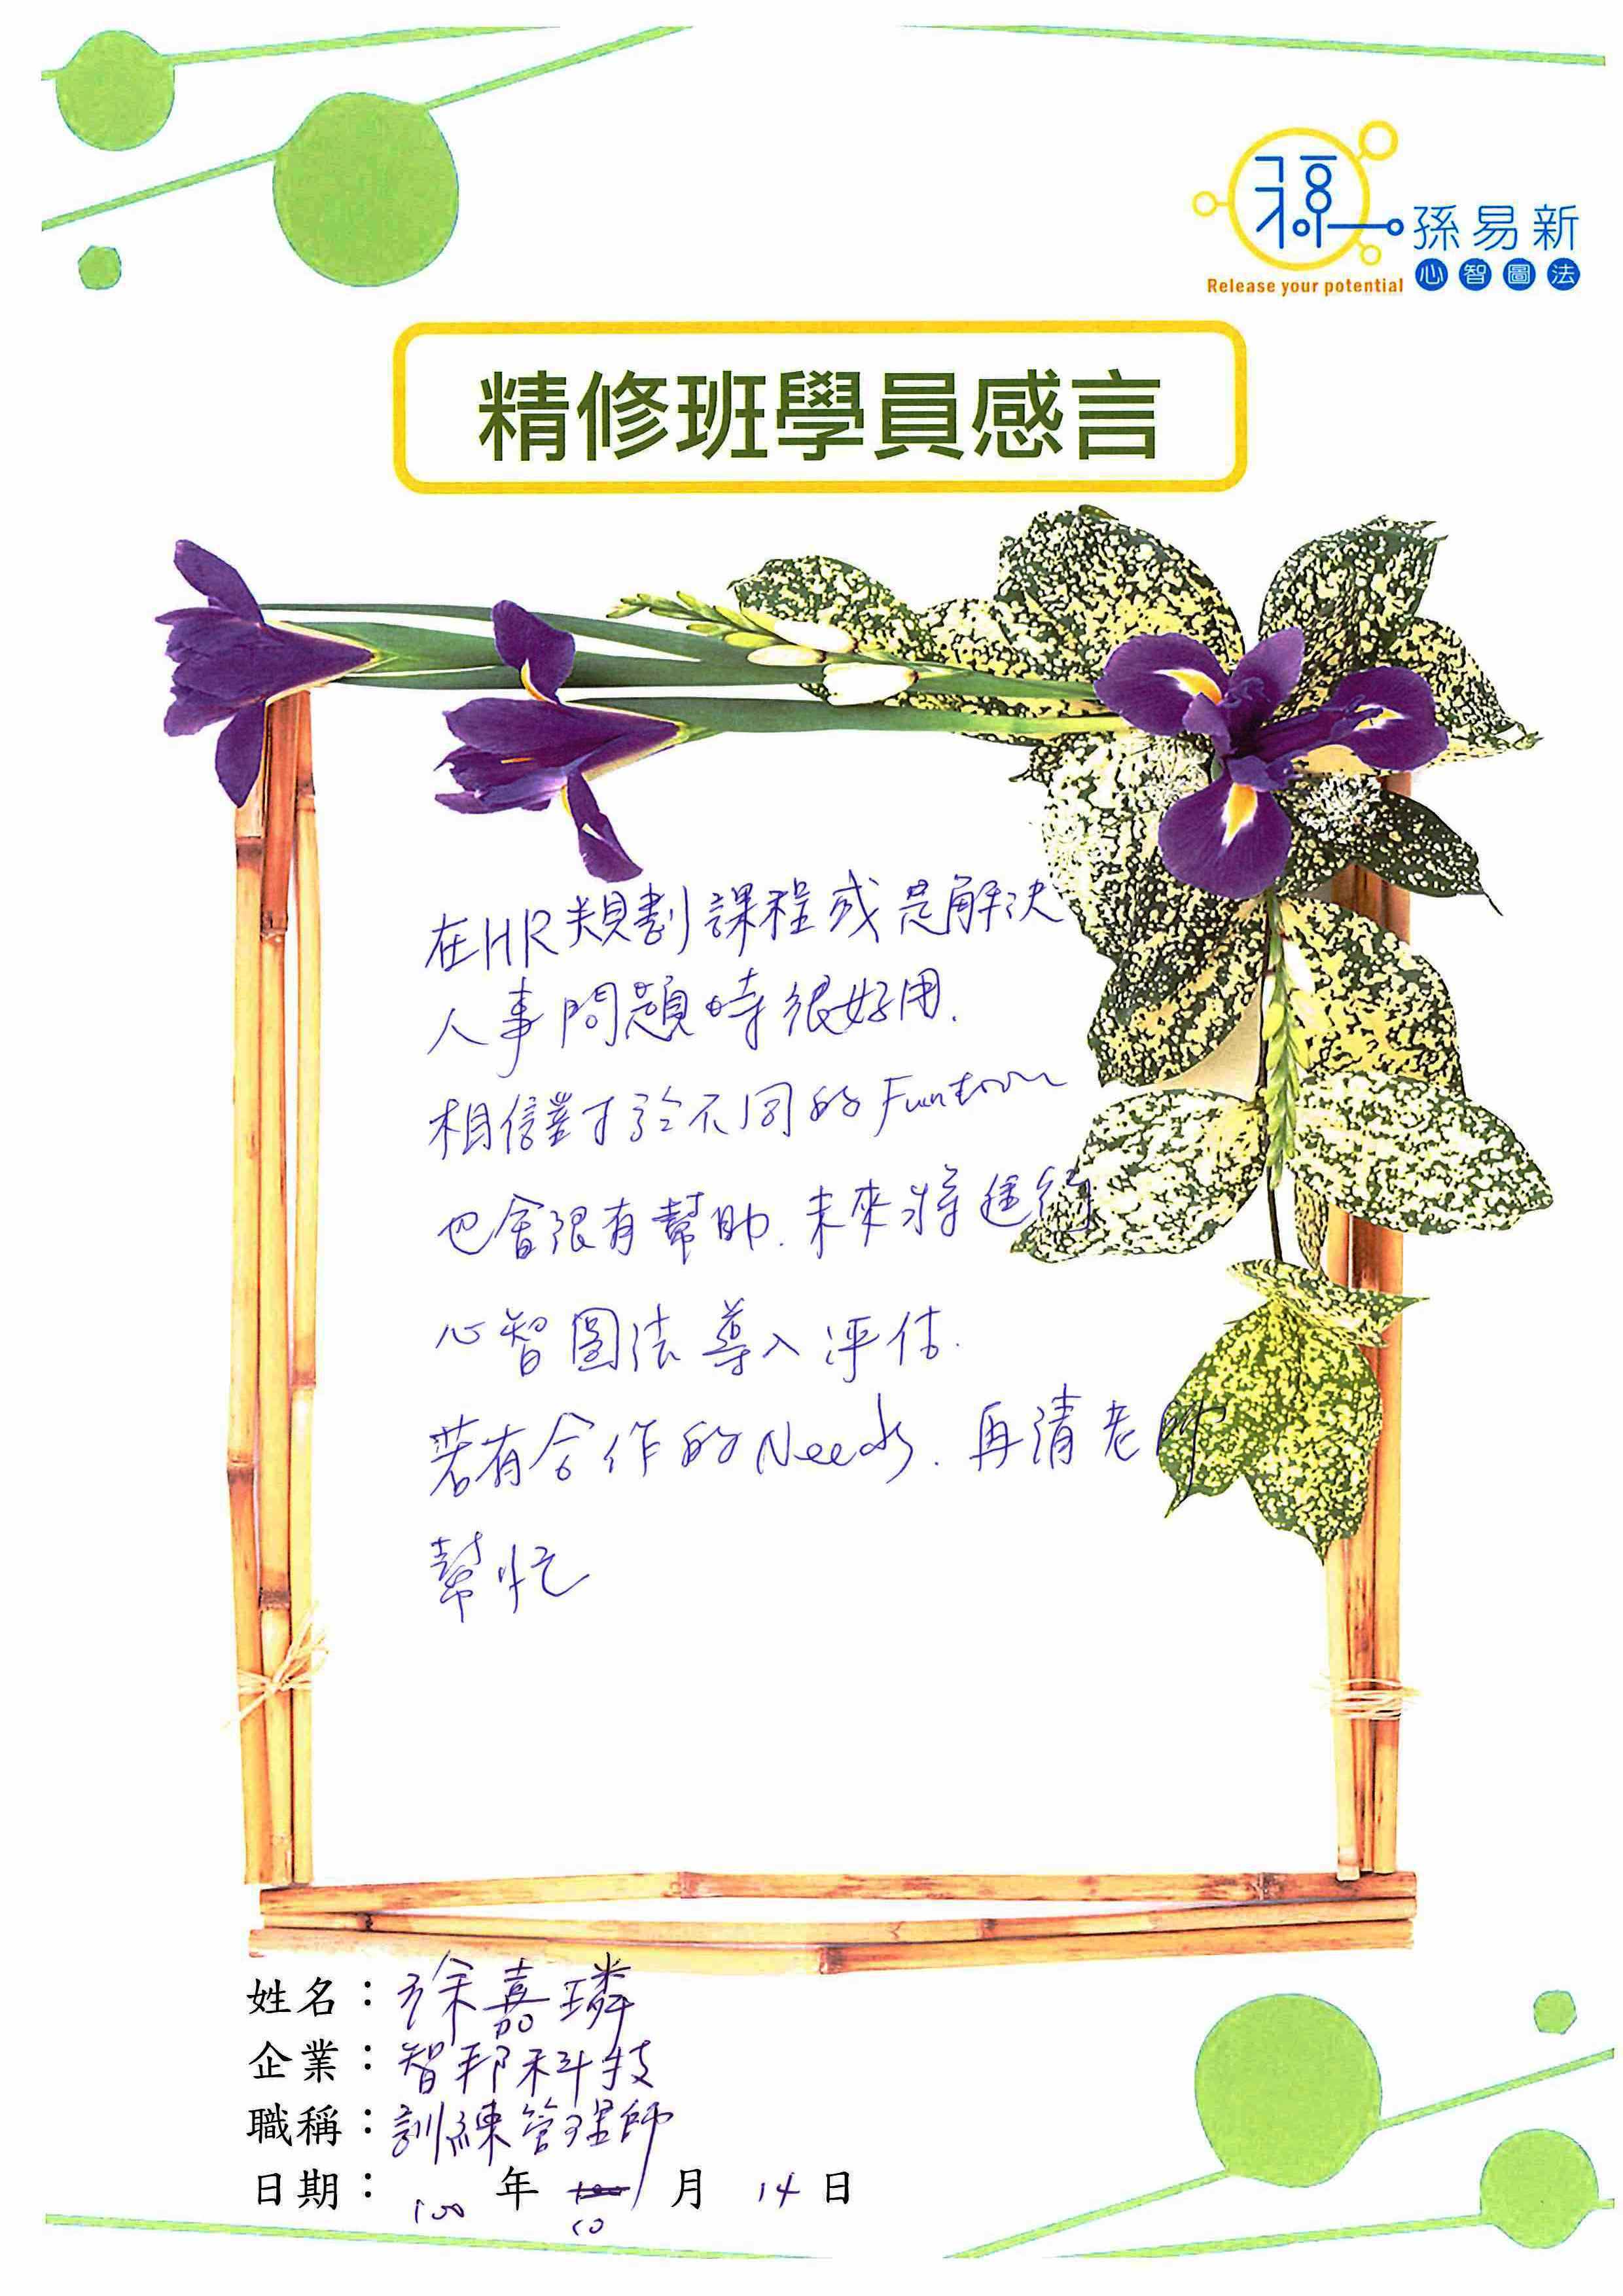 孫易新
心智圖法
Release your potential
精修班學員感言
在HR規劃課程或是解決
人事問題時很好用.
相信對於不同的Funtion
也會很有幫助. 未來將進行
心智圖法導入評估.
若有合作的Needs. 再請老師
幫忙
姓名：徐嘉璘
企業：智邦科技
職稱：訓練管理師
日期：100年10月14日